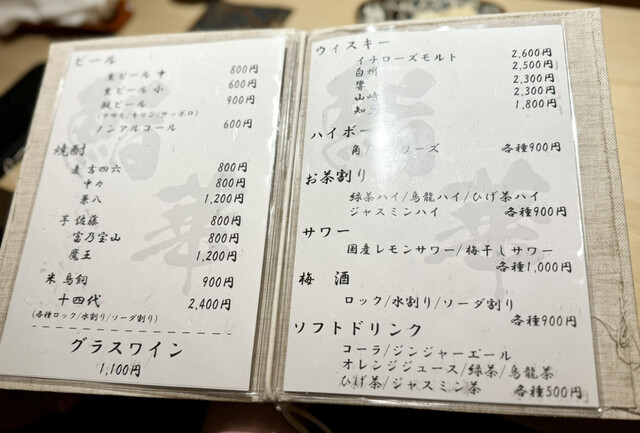 ビール
生ビール 中 800円
生ビール 小 600円
瓶ビール 900円
(アサヒ/キリン/サッポロ)
ノンアルコール 600円
焼酎
麦 吉四六 800円
中々 800円
兼八 1,200円
芋 佐藤 800円
富乃宝山 800円
魔王 1,200円
米 鳥飼 900円
十四代 2,400円
(各種ロック/水割り/ソーダ割り)
グラスワイン
1,100円
ウィスキー
イチローズモルト 2,600円
白州 2,500円
響 2,300円
山崎 2,300円
知 1,800円
ハイボー
角/ ローズ 各種900円
お茶割り
緑茶ハイ/烏龍ハイ/ひげ茶ハイ
ジャスミンハイ 各種900円
サワー
国産レモンサワー/梅干しサワー
各種1,000円
梅 酒
ロック/水割り/ソーダ割り
各種900円
ソフトドリンク
コーラ/ジンジャーエール
オレンジジュース/緑茶/烏龍茶
ひげ茶/ジャスミン茶 各種500円